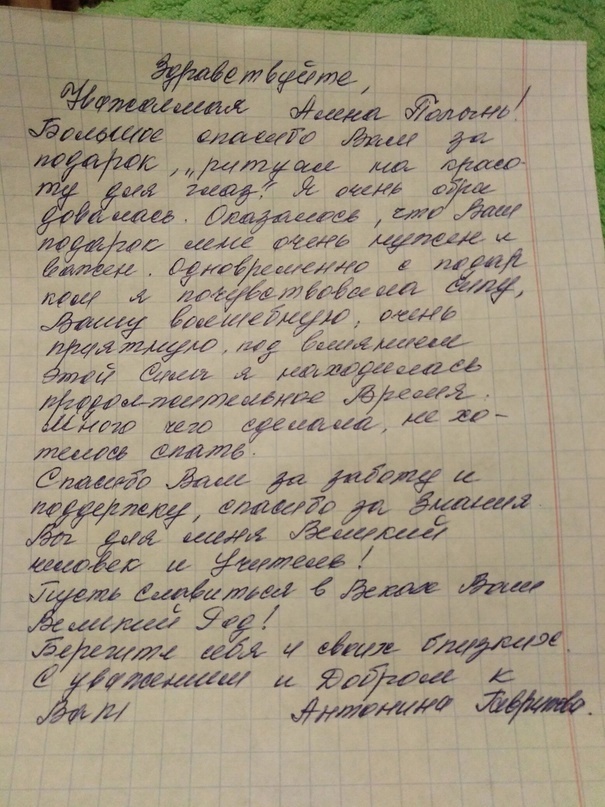 Здравствуйте,
Уважаемая Алена Полынь!
Большое спасибо Вам за
подарок, „ритуал на красо-
ту для глаз". Я очень обра
довалась. Оказалось, что Ваш
подарок мне очень нужен и
важен. Одновременно с подар
ком я почувствовала силу,
Вашу волшебную, очень
приятную, под влиянием
этой силы я находилась
продолжительное Время.
Много чего сделала, не хо-
телось спать.
Спасибо Вам за заботу и
поддержку, спасибо за Знания
Вы для меня Великий
человек и Учитель!
Пусть славиться в Веках Ваш
Великий Род!
Берегите себя и своих близких.
С уважением и Добром к
Вам Антонина